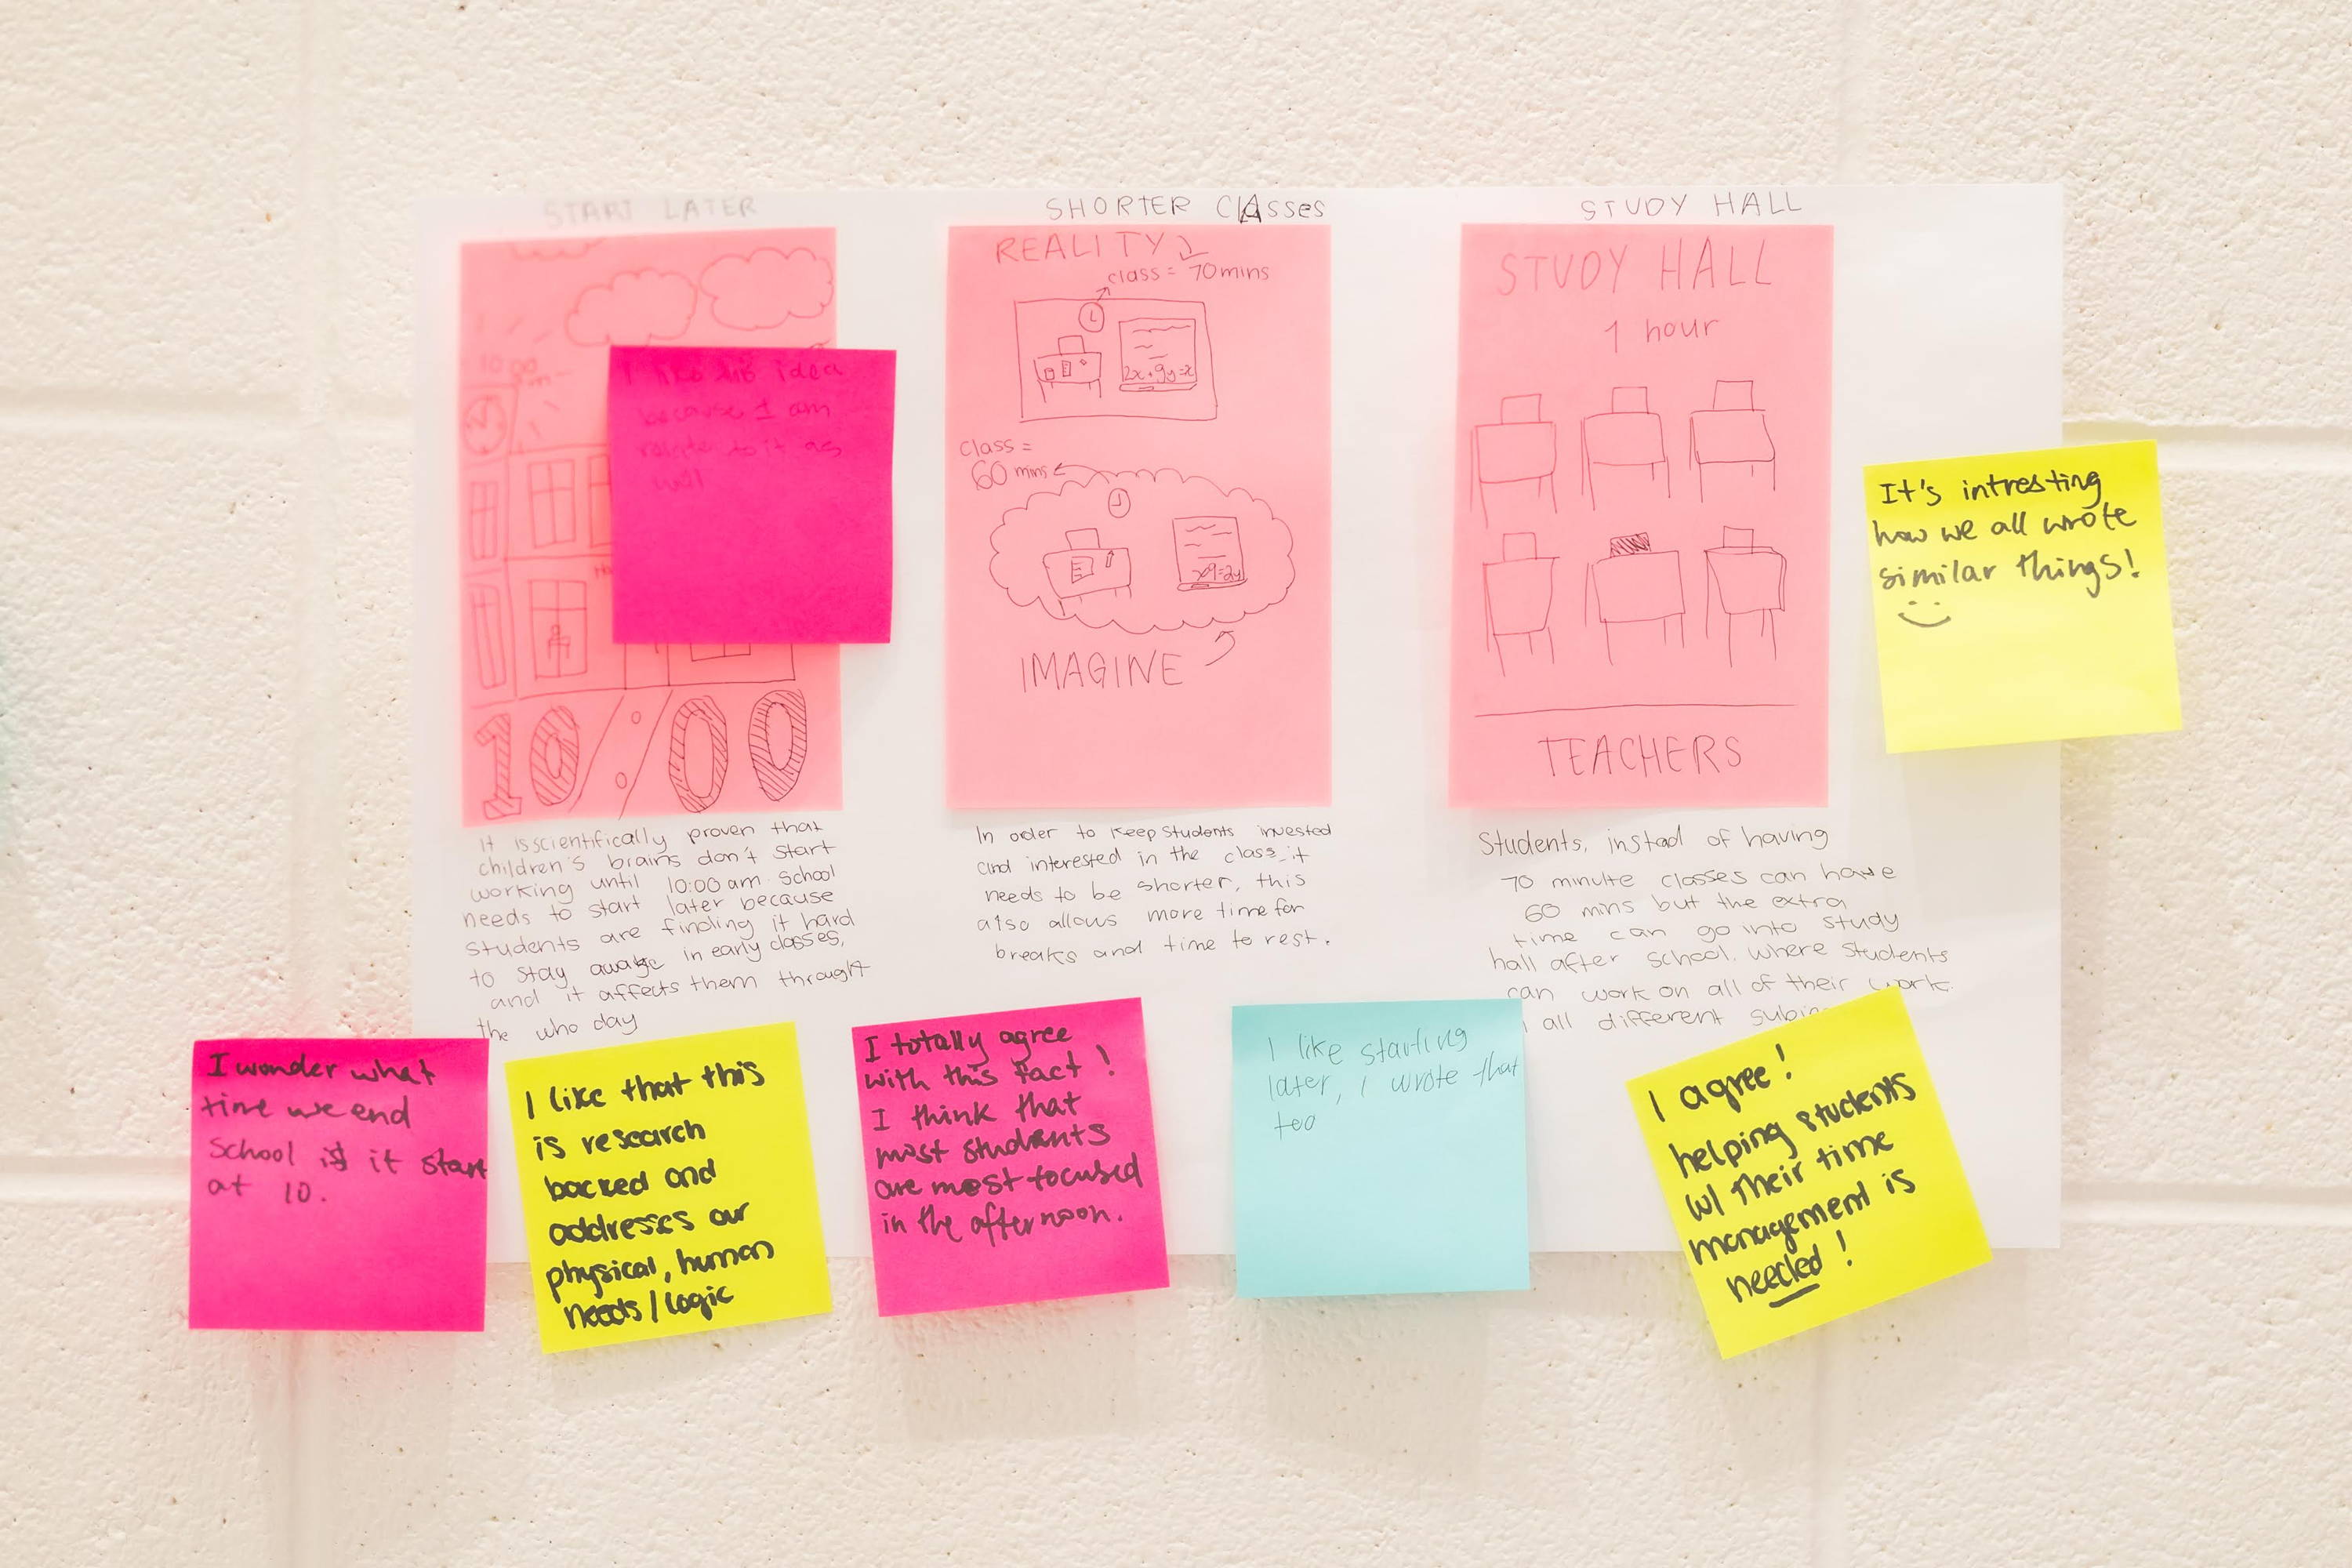 START LATER
10:00
I like
idea
because I am
relate to it as
well
10:00
It is scientifically proven that
children's brains don't start
working until 10:00 am. School
needs to start later because
students are finding it hard
to stay awake in early classes,
and it affects them throught
the who day
SHORTER CLAsses
REALITY
class = 70 mins
2x+9y=x
class =
60 mins
IMAGINE
In order to keep students invested
and interested in the class it
needs to be shorter, this
also allows more time for
breaks and time to rest.
STUDY HALL
STUDY HALL
1 hour
TEACHERS
Students, instad of having
70 minute classes can have
60 mins but the extra
time can go into study
hall after school. where students
can work on all of their work.
all different
It's intresting
how we all wrote
similar things!
I wonder what
time we end
school is it start
at 10.
I like that this
is research
backed and
addresses our
physical, human
needs/logic
I totally agree
with this fact!
I think that
most students
are most focused
in the afternoon.
I like starting
later, I wrote that
too
I agree!
helping students
w/ their time
management is
needed!